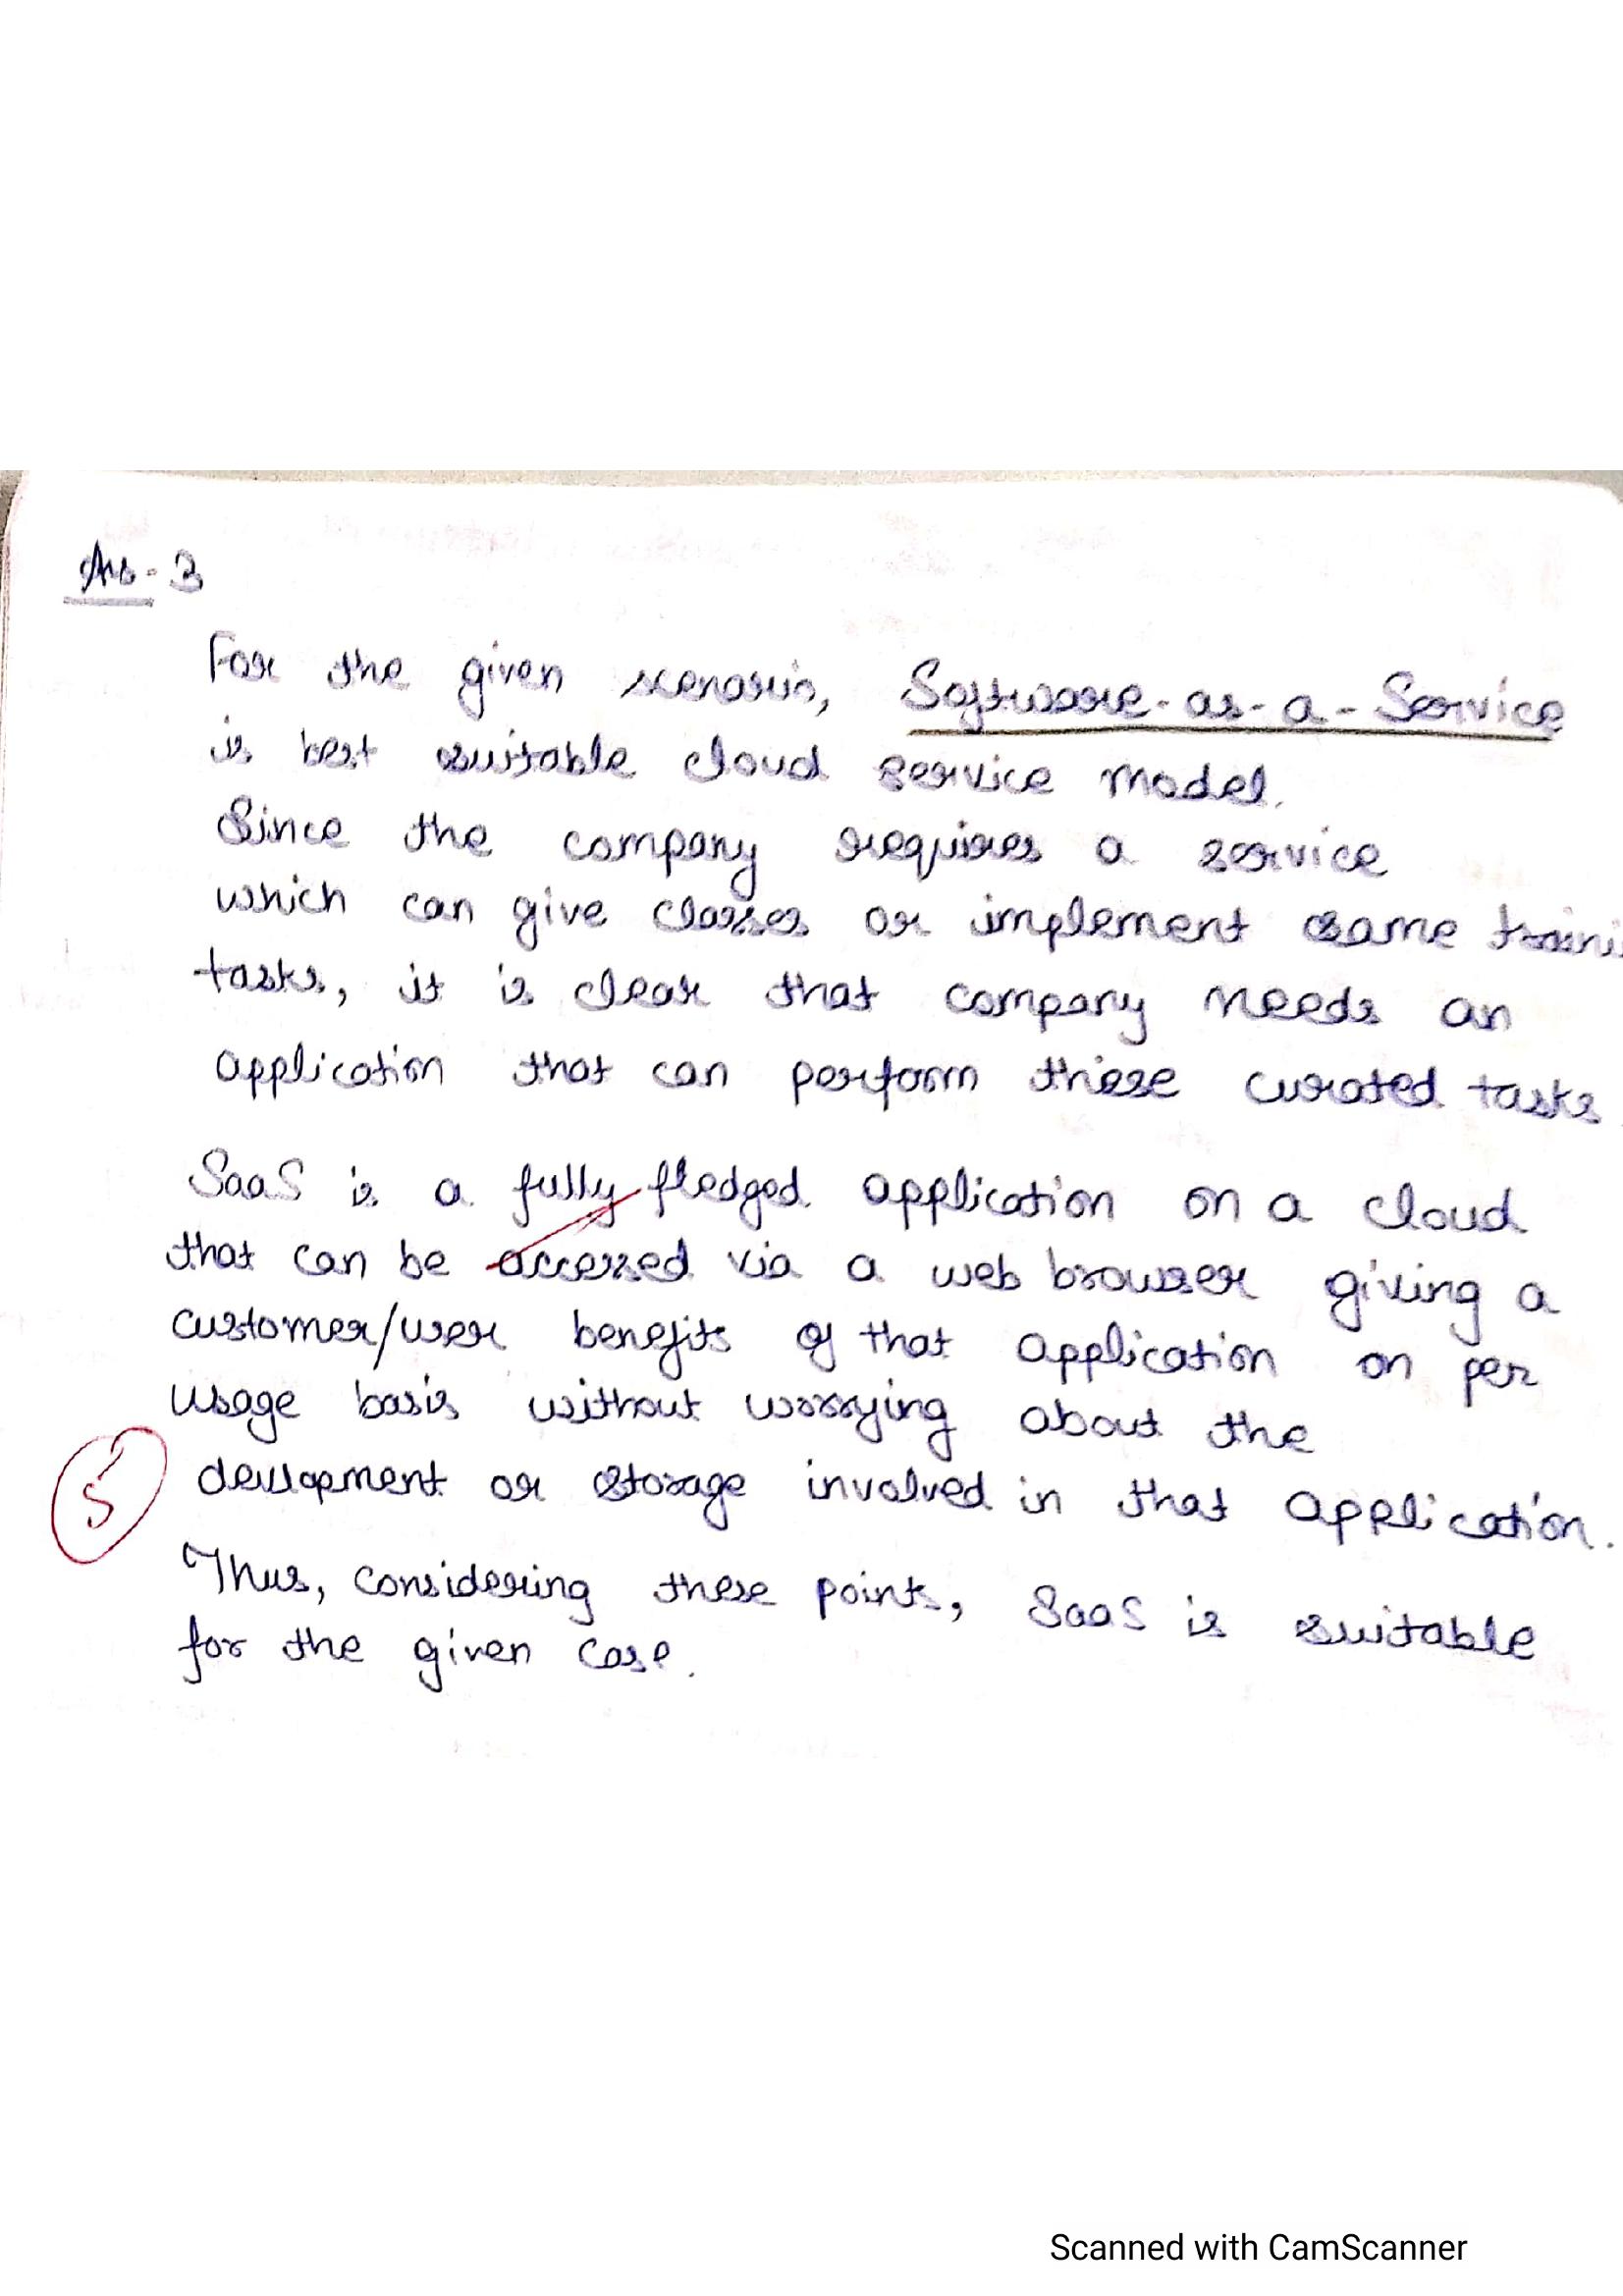 Ans-3
For the given scenario, Software-as-a-Service
is best suitable cloud service model.
Since the company requires a service
which can give classes or implement some traini
tasks, it is clear that company needs an
application that can perform these curated tasks.
SaaS is a fully fledged application on a cloud
that can be accessed via a web browser giving a
customer/user benefits of that application on per
usage basis without worrying about the
5
development or storage involved in that application.
Thus, considering these points, SaaS is suitable
for the given case.
Scanned with CamScanner